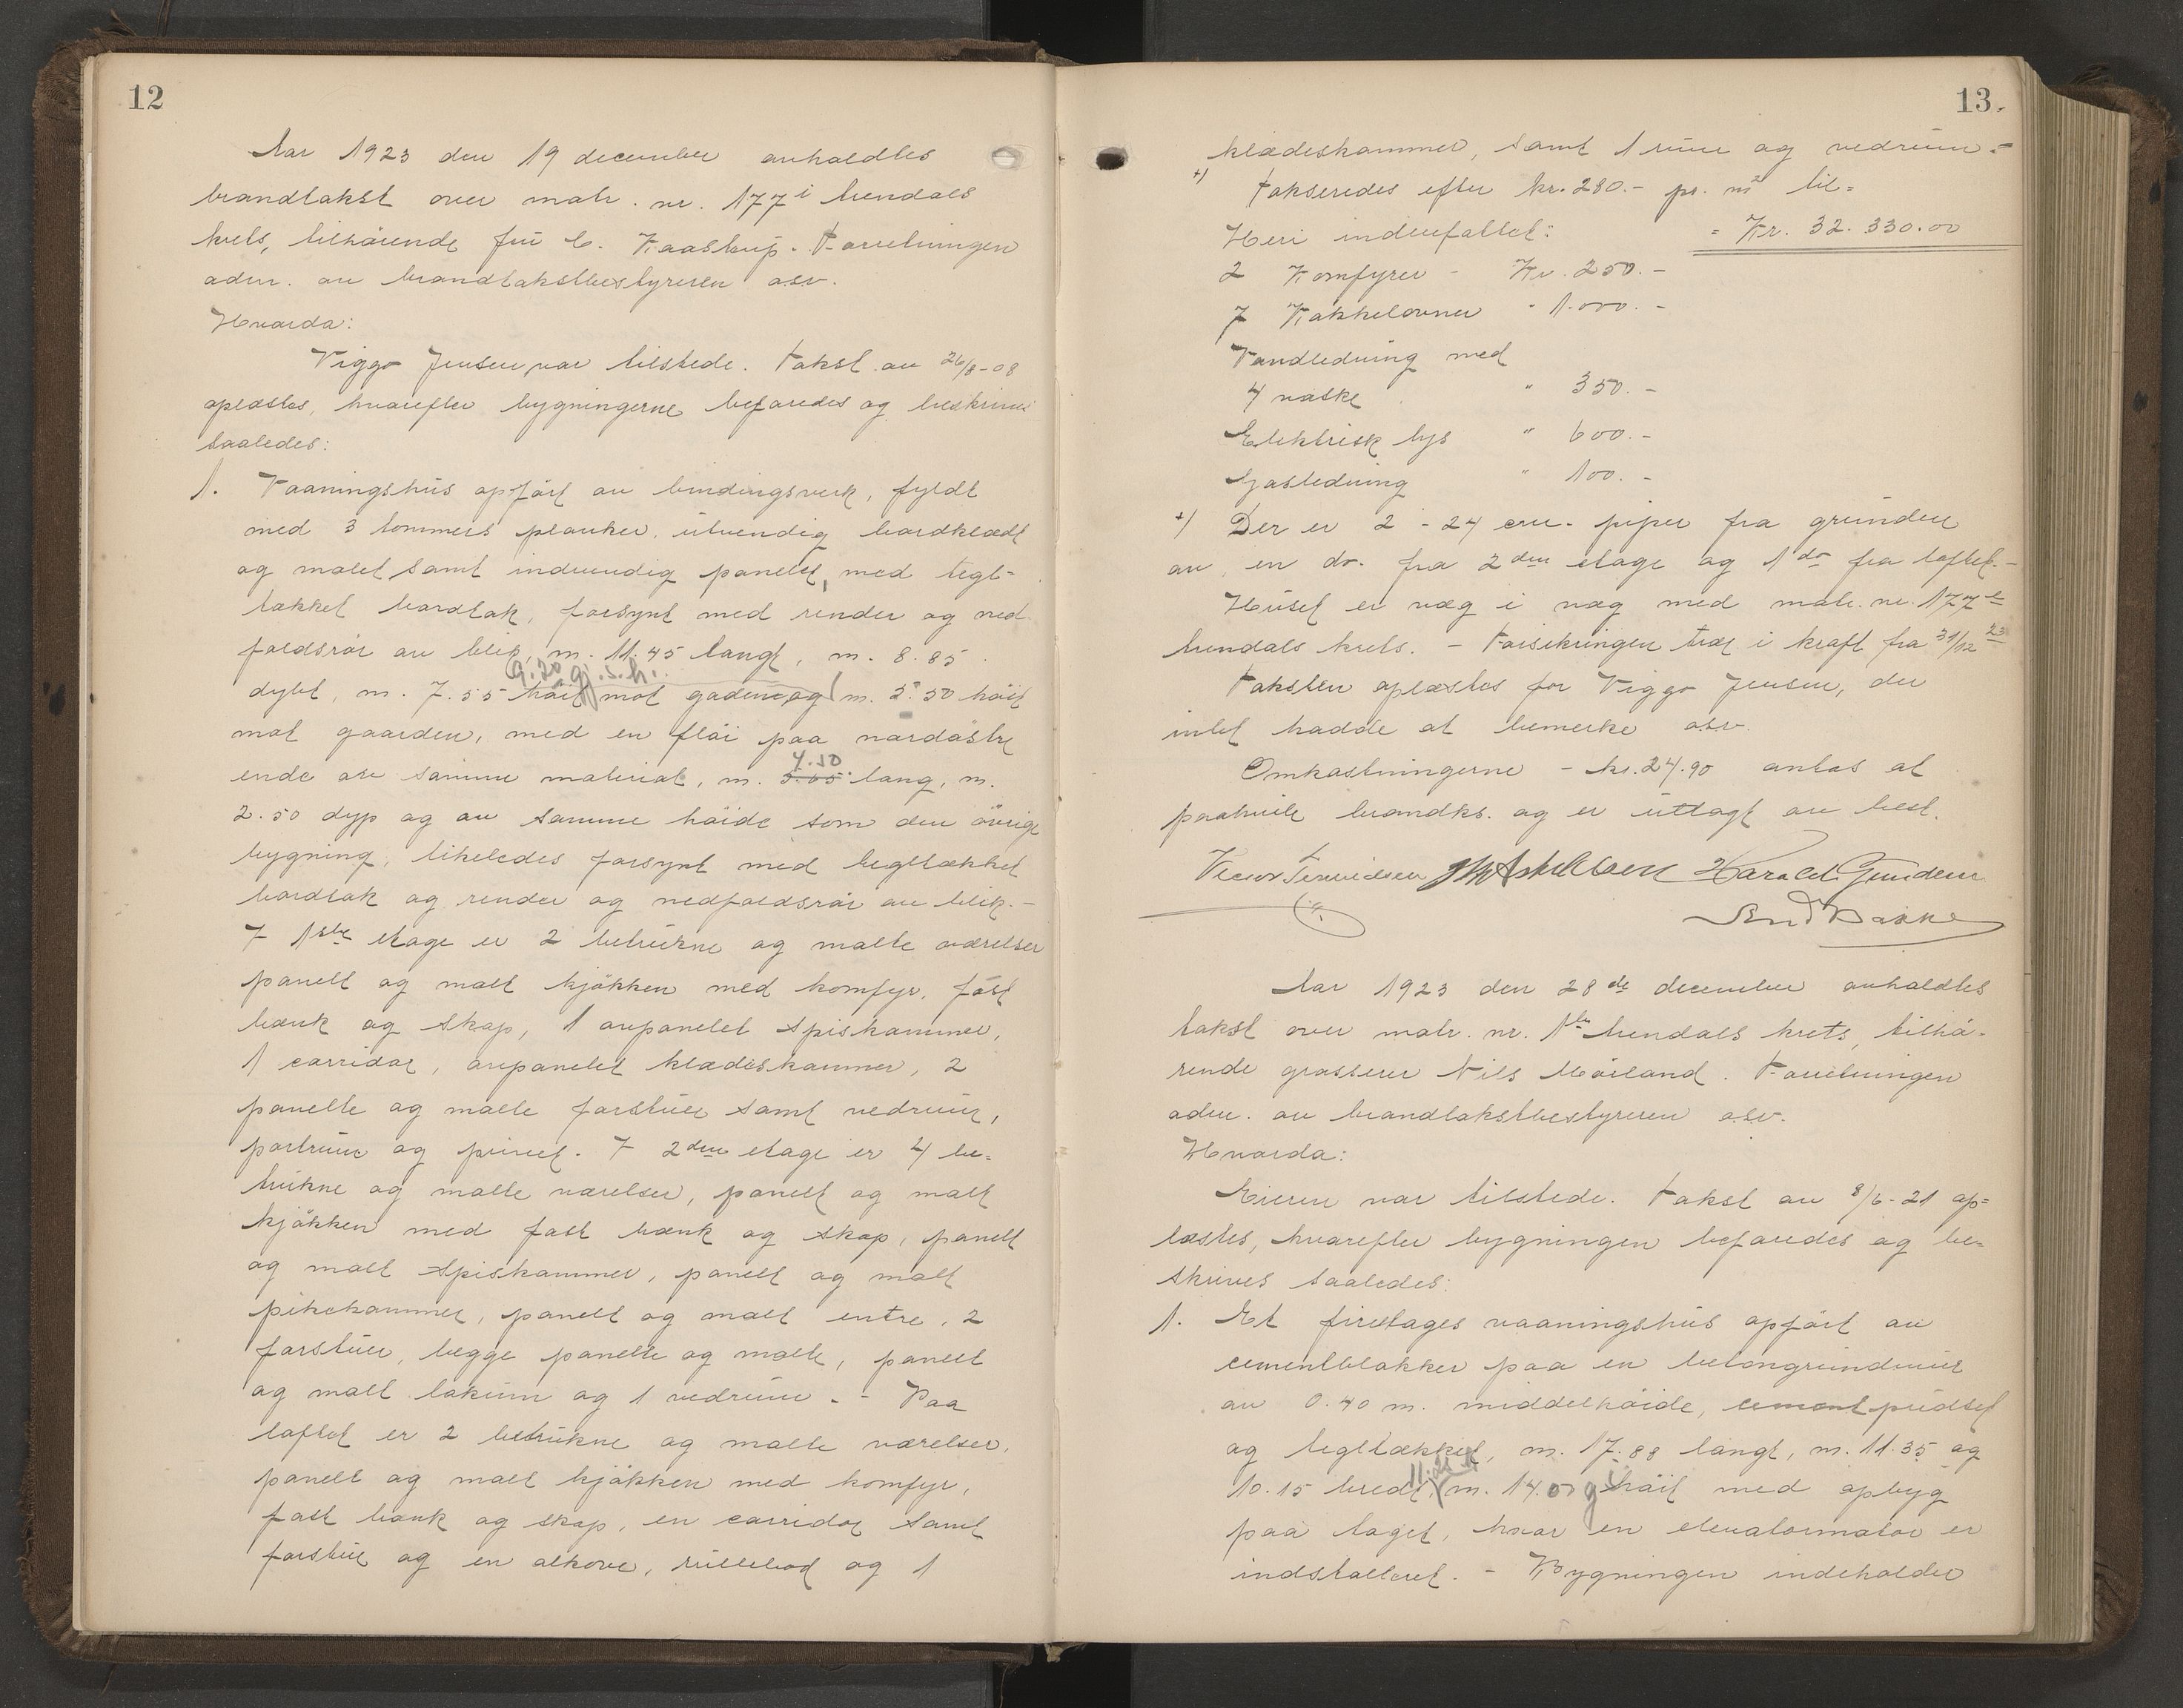 12
Aar 1923 den 19 december avholdtes
brandtakst over matr. nr. 177 i Lundals
krets, tilhörende frú C. Kaastrup. Forretningen
adm. av brandtakstbestyreren osv.
Hvorda:
Viggo Jensen var tilstede. Takst av 26/8-08
oplæstes, hvorefter bygningerne befaredes og beskrives
saaledes:
1. Vaaningshús opfört av bindingsverk, fyldt
med 3 tommers planker, útvendig bordklædt
og malet samt indvendig panelet, med tegl-
tækket bordtak, forsynt med render og ned-
faldsrör av blik, m. 11.45 langt, m. 8.85
9.20 gj.s.h.
dypt, m. 7.55 höit mot gaden og m. 5.50 höit
mot gaarden, med en flöi paa nordöstre
4.50
ende av samme material, m. 5.65 lang, m.
2.50 dyp og av samme höide som den övrige
bygning, likeledes forsynt med tegltækket
bordtak og render og nedfaldsrör av blik. -
I 1ste etage er 2 betrúkne og malte værelser
panelt og malt kjökken med komfyr, fast
bænk og skap, 1 avpanelet spiskammer,
1 corridor, avpanelet klædeskammer, 2
panelte og malte forstúer samt vedrúm,
portrúm og privet. I 2den etage er 4 be-
trúkne og malte værelser, panelt og malt
kjökken med fast bænk og skap, panelt
og malt spiskammer, panelt og malt
pikekammer, panelt og malt entre, 2
forstúer, begge panelte og malte, panelt
og malt lokúm og 1 vedrúm. - Paa
loftet er 2 betrúkne og malte værelser,
panelt og malt kjökken med komfyr,
fast bænk og skap, en corridor samt
forstúe og en alkove, rúllebod og 1
13.
klædeskammer, samt 1 rúm og vedrúm. -
+) Takseredes efter kr. 280.- pr. m² til =
Heri indbefattet: = Kr. 32.330.00
2 Komfyrer - Kr. 250.-
7 Kakkelovner " 1.000.-
Vandledning med
4 vaske " 350.-
Elektrisk lys " 600.-
Gasledning " 100.-
+) Der er 2 - 24 cm. piper fra grúnden
av, en do. fra 2den etage og 1 do fra loftet. -
Húset er væg i væg med matr. nr. 177
Lundals krets. - Forsikringen træt i kraft fra 31/12 23
Taksten oplæstes for Viggo Jensen, der
intet hadde at bemerke osv.
Omkostningerne - kr. 24.90 antas at
paahvile brandks. og er úttagt av best.
Harald Gundersen
Bakke
Aar 1923 den 28de december avholdtes
takst over matr. nr. 1 Lundals krets, tilhö-
rende grosserer Nils Moiland. Forretningen
adm. av brandtakstbestyreren osv.
Hvorda:
Eieren var tilstede. Takst av 8/6-21 op-
læstes, hvorefter bygningen befaredes og be-
skrives saaledes:
1. Et fireetages vaaningshús opfört av
cementblokker paa en betongrúndmúr
av 0.40 m. middelhöide, cement púdset
og tegltækket, m. 17.88 langt, m. 11.35 og
10.15 bredt, m. 14.00 höit med opbyg
paa taget, hvor en elevatormotor er
indstalleret. - Bygningen indeholder